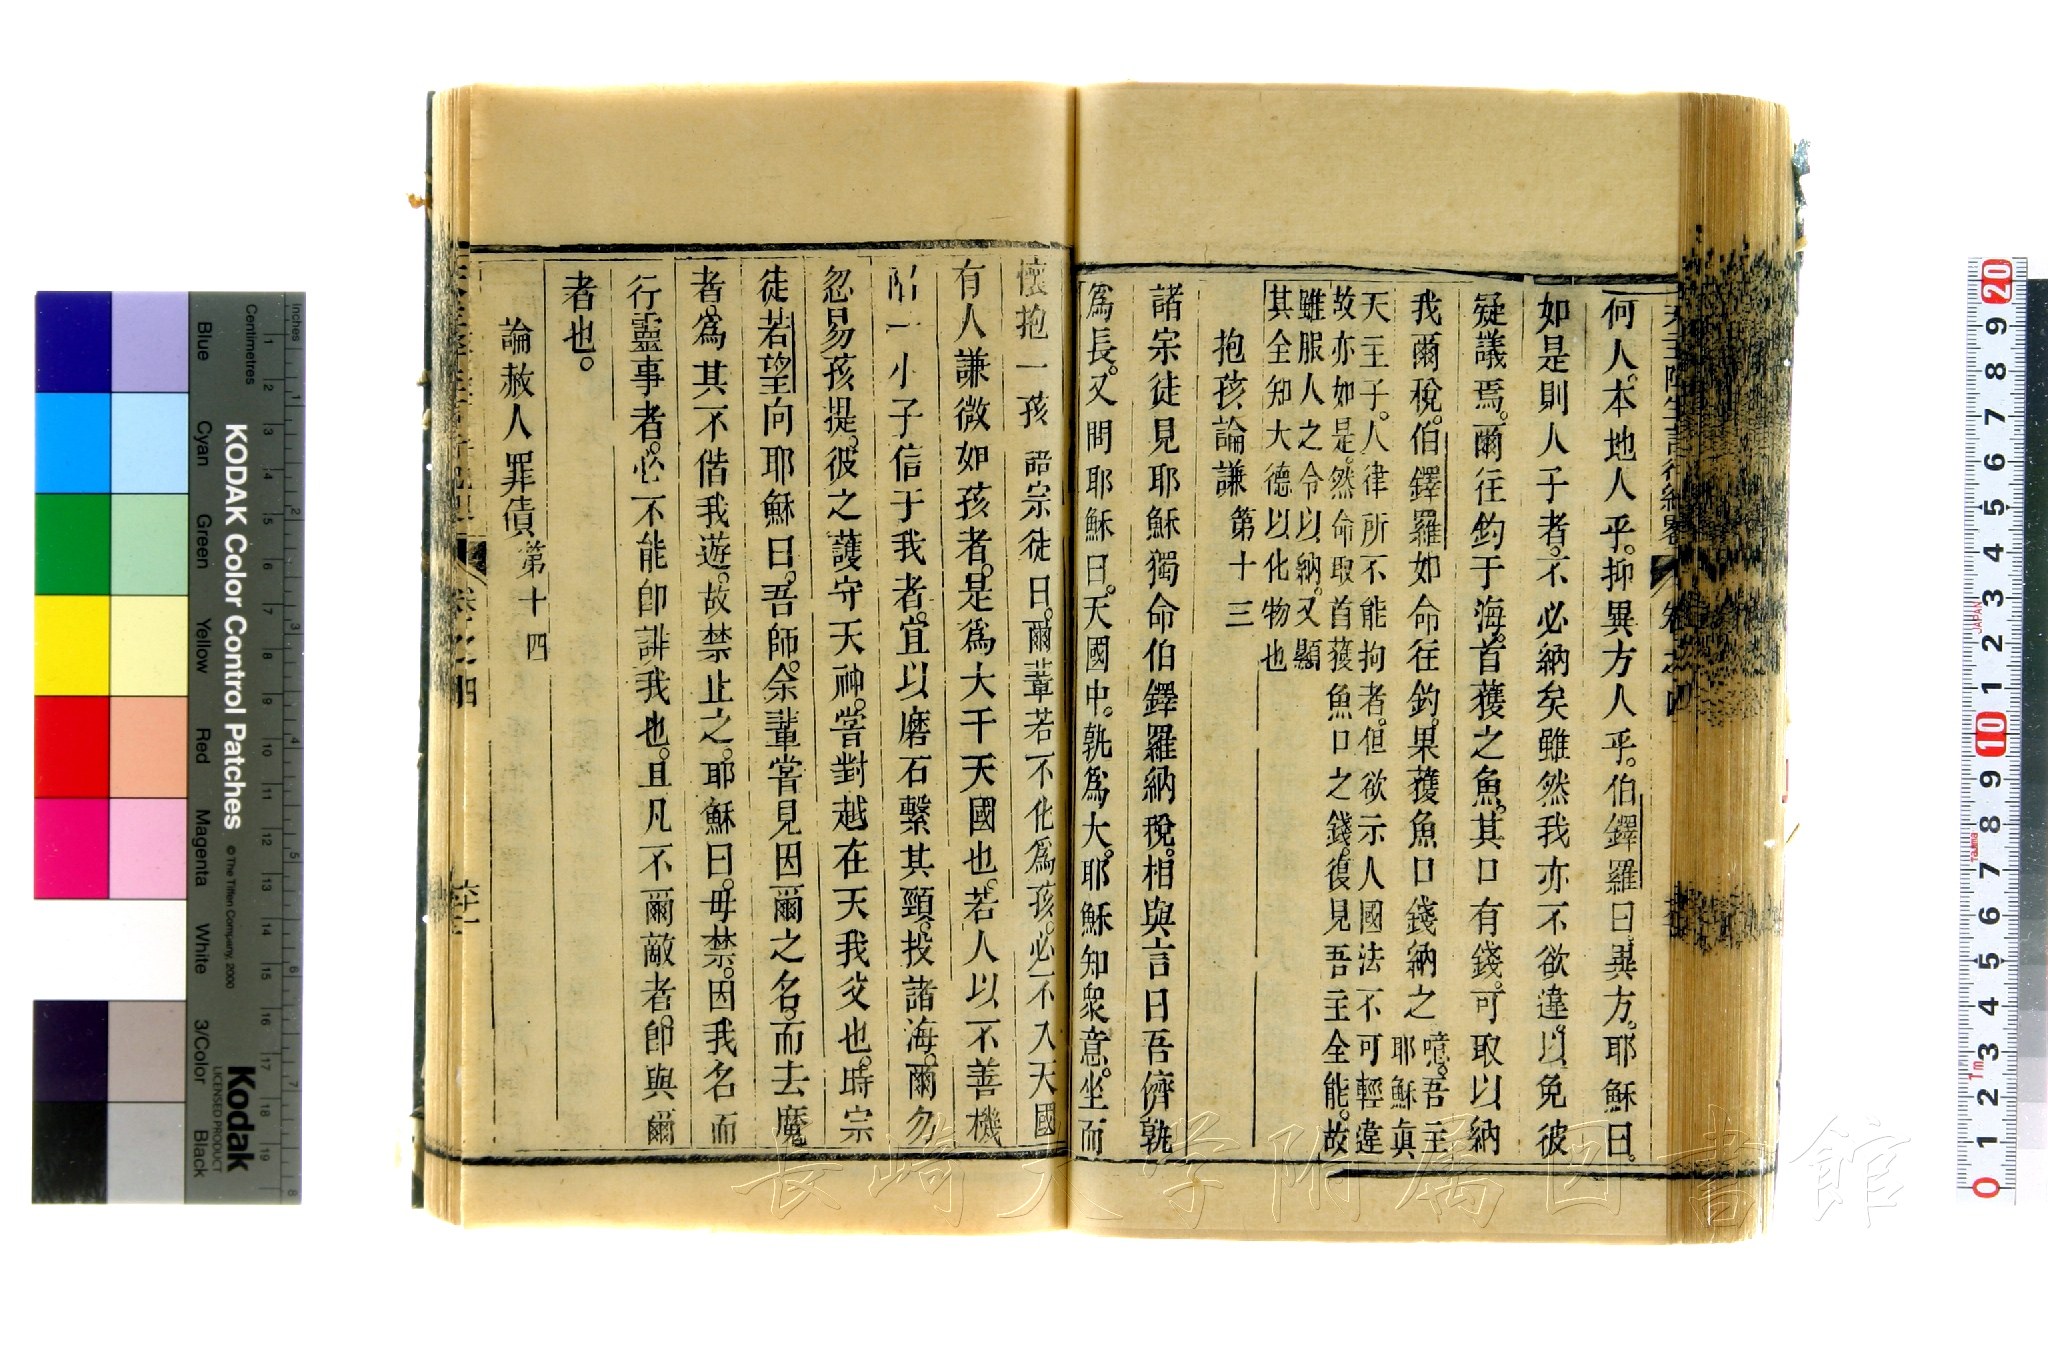 天主降生言行紀畧 卷之四
何人。本地人乎。抑異方人乎。伯鐸羅曰。異方。耶穌曰。
如是則人子者。不必納矣雖然我亦不欲違。以免彼
疑議焉。爾往釣于海。首獲之魚。其口有錢。可取以納
我爾稅。伯鐸羅如命往釣。果獲魚口錢納之
噫。吾主
耶穌真
天主子。人律所不能拘者。但欲示人國法不可輕違
故亦如是。然命取首獲魚口之錢復見吾主全能。故
雖服人之令以納。又顯
其全知大德以化物也
抱孩論謙 第十三
諸宗徒見耶穌獨命伯鐸羅納稅。相與言曰吾儕孰
爲長。又問耶穌曰。天國中。孰爲大。耶穌知衆意。坐而
懷抱一孩 語宗徒曰。爾輩若不化爲孩。必不入天國
有人謙微如孩者。是爲大于天國也。若人以不善機
陷一小子信于我者。宜以磨石繫其頸。投諸海。爾勿
忽易孩提。彼之護守天神。嘗對越在天我父也。時宗
徒若望向耶穌曰。吾師。余輩嘗見因爾之名。而去魔
者。爲其不偕我遊。故禁止之。耶穌曰。毋禁。因我名而
行靈事者。必不能卽誹我也。且凡不爾敵者。卽與爾
者也。
論赦人罪債 第十四
卷之四
Kodak
LICENSED PRODUCT
KODAK Color Control Patches
© The Tiffen Company, 2000
Inches
Centimetres
Blue
Cyan
Green
Yellow
Red
Magenta
White
3/Color
Black
長崎大学附属図書館
JAPAN
Tajima